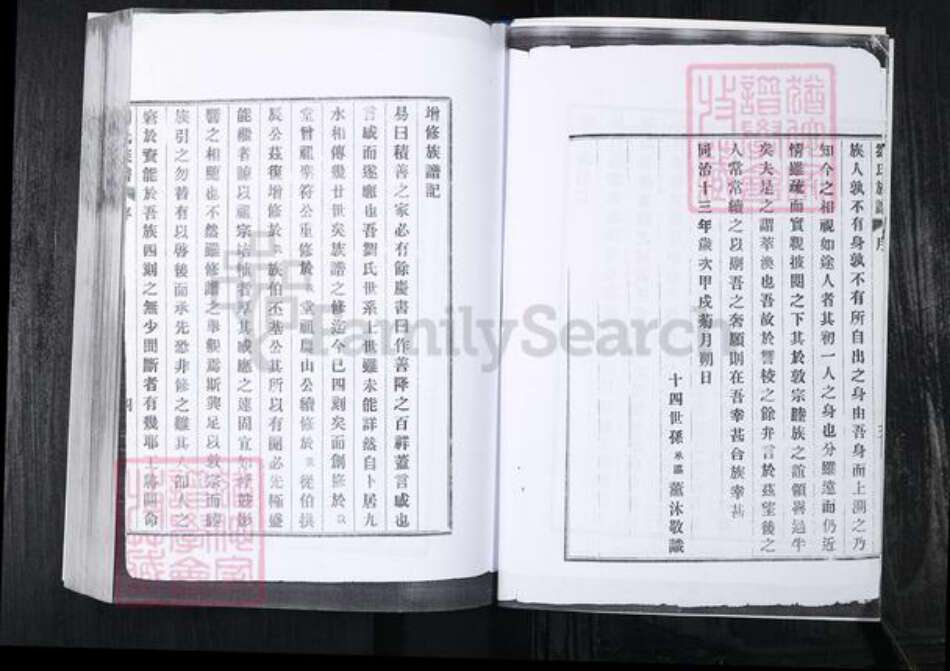 劉氏族譜 序
族人孰不有身孰不有所自出之身由吾身而上溯之乃
知今之相視如途人者其初一人之身也分雖遠而仍近
情雖疏而實親披閱之下其於敦宗睦族之誼領畧過半
矣夫是之謂萃渙也吾故於讐校之餘弁言於茲望後之
人常常續之以副吾之奢願則在吾幸甚合族幸甚
同治十三年歲次甲戌菊月朔日
十四世孫 薰沐敬識
增修族譜記
易曰積善之家必有餘慶書曰作善降之百祥蓋言感也
言感而遂應也吾劉氏世系上世雖未能詳然自卜居九
水相傳幾廿世矣族譜之修迄今已四刻矣而創修於
堂曾祖 符公重修於 堂祖 山公續修於 從伯
辰公茲復增修於 族伯丕基公其所以有開必先極盛
能繼者 以祖宗培植者厚其感應之速固宜如 影
響之相應也不然雖修譜之舉 焉斯興足以敦宗而睦
族引之勿替有以啓後而承先恐非修之難其人卻人之
於 能於吾族四刻之無少間斷者有幾耶 命
FamilySearch